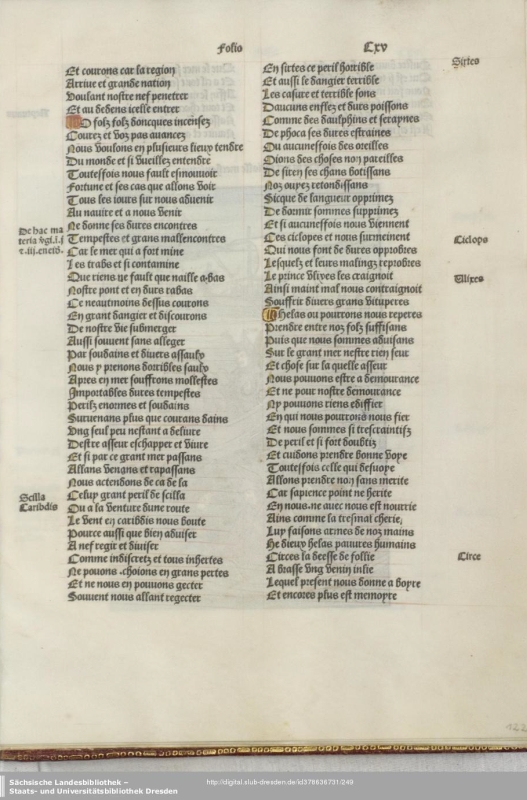 Folio
Cxv
Et courons car la region
Arriue et grande nation
Voulant nostre nef penetrer
Et au dedens icelle entrer
O folz folz doncques incensez
Courez et voz pas auancez
Nous voulons en plusieurs lieux tendre
Du monde et si vueillez entendre
Toutesfois nous fault esmouuoir
Fortune et ses cas que allons voir
Tous les iours sur nous aduenir
Au nauire et a nous venir
Ne donne ses dures encontres
Tempestes et grans mallencontres
Car le mer qui a fort mine
Les trabs et si contamine
Que riens ne fault que naille abas
Nostre pont et en durs rabas
Ce neautmoins dessus courons
En grant dangier et discourons
De nostre vie submerger
Aussi souuent sans alleger
Par soudains et diuers assaulx
Nous y prenons dorribles saulx
Apres en mer souffrons mollestes
Importables dures tempestes
Perilz enormes et soudains
Suruenans plus que courans dains
Vng seul peu nestant a deliure
Destre asseur eschapper et viure
Et si par ce grant mer passans
Allans venans et rapassans
Nous actendons de ca de la
Celuy grant peril de scilla
Ou a la venture dune route
Le vent en caribdis nous boute
Pource aussi que bien aduiser
A nef regir et diuiser
Comme indiscretz et tous inhertes
Ne pouons .choions en grans pertes
Et ne nous en pouuons gecter
Souuent nous allant regecter
De hac ma
teria
Scilla
Caribdis
En sirtes ce peril horrible
Et aussi le dangier terrible
Les casure et terrible sons
Daucuns enflez et durs poissons
Comme des daulphins etseraynes
De phoca ses dures estraines
Ou aucunesfois des oreilles
Oions des choses non pareilles
De siren ses chans botissans
Noz ouyez retondissans
Sicque de langueur opprimez
De dormir sommes supprimez
Et si aucunesfois nous viennent
Ces ciclopes et nous surmeinent
Qui nous font de dures opprobres
Lesquelz et leurs malingz reprobres
Le prince Vlixes les craignoit
Ainsi maint mal nous contraignoit
Souffrir diuers grans vituperes
Helas ou pourrons nous reperes
Prendre entre noz folz suffisans
Puis que nous sommes aduisans
Sur le grant mer nestre rien seur
Et chose sur la quelle asseur
Nous pouuons estre a demourance
Et ne pour nostre demourance
Ny pouuons riens ediffier
En qui nous pourrons nous fier
Et nous sommes si trescraintifz
De peril et si fort doubtiz
Et cuidons prendre bonne voye
Toutesfois celle qui desuoye
Allons prendre non sans merite
Car sapience point ne herite
En nous.ne auec nous est nourrie
Ains comme la tresmal cherie,
Luy faisons armes de noz mains
He dieux helas pauures humains
Circes la deesse de follie
A brasse vng venin inlie
Lequel present nous donne a boyre
Et encores plus est memoyre
Sirtes
Ciclops
Ulixes
Circe
122
Sächsische Landesbibliothek –
Staats- und Universitätsbibliothek Dresden
http://digital.slub-dresden.de/id378836731/249